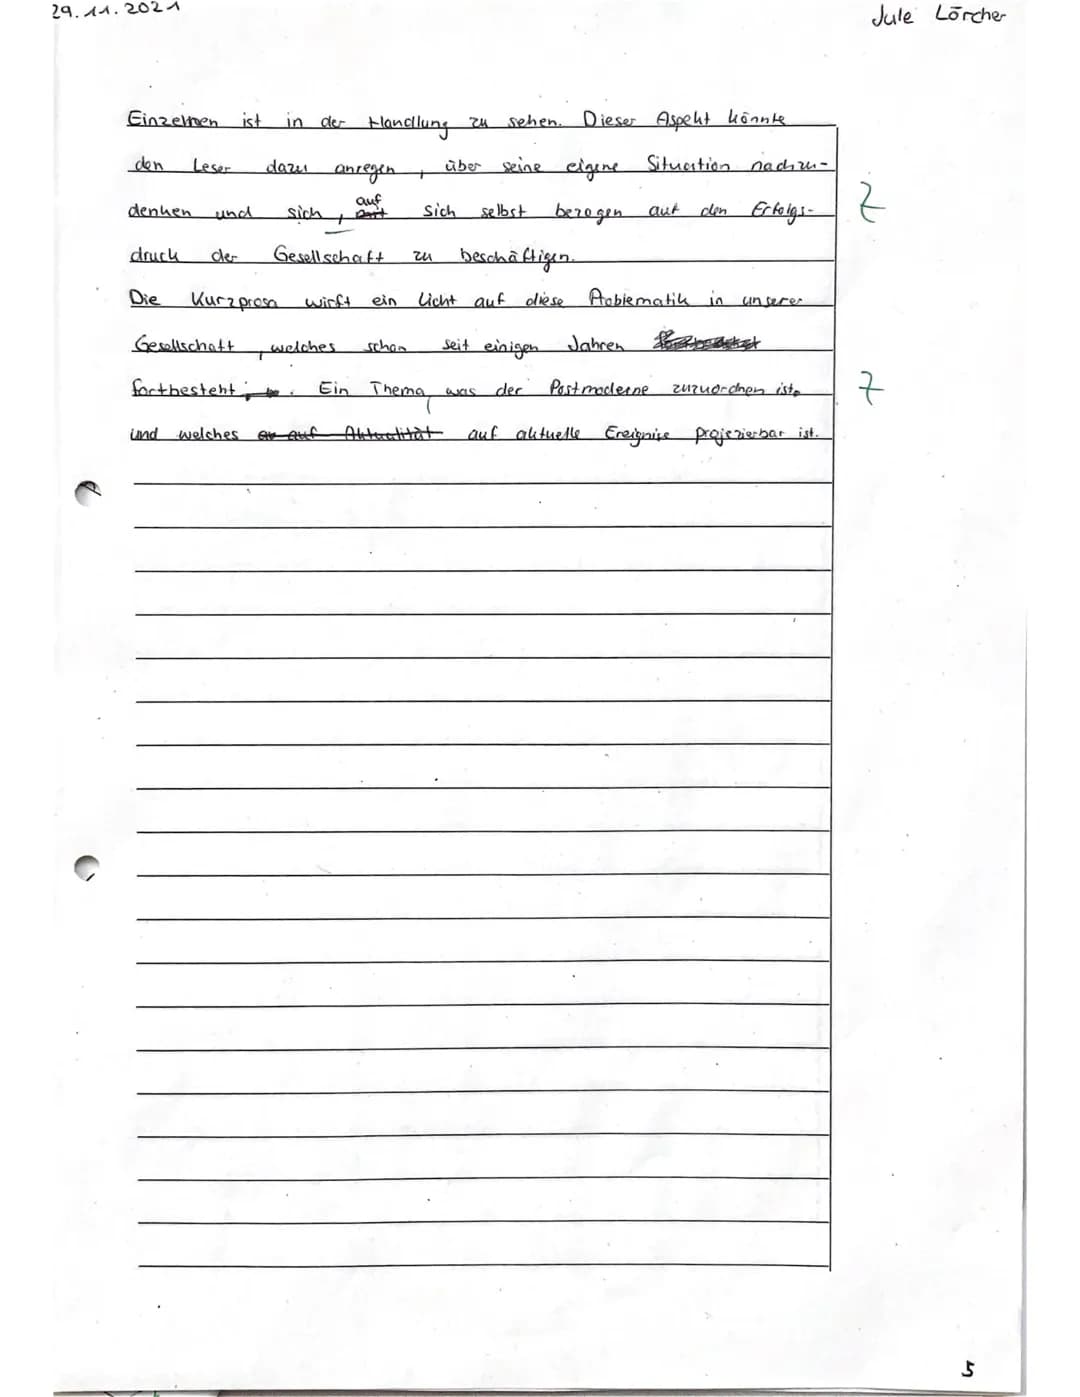 29.11.2021
Jule Lörcher
Einzelnen ist in der Handlung zu sehen. Dieser Aspekt könnte
den Leser dazu anregen, über seine eigene Situation nachzu-
denken und sich, auf sich selbst bezogen auf den Erfolgs-
druck der Gesellschaft zu beschäftigen.
Die Kurzprosa wirft ein Licht auf diese Problematik in unserer
Gesellschaft, welches schon seit einigen Jahren
fortbesteht. Ein Thema, was der Postmoderne zuzuordnen ist,
und welches auf Aktualität auf aktuelle Ereignise projezierbar ist.
Z
Z
5